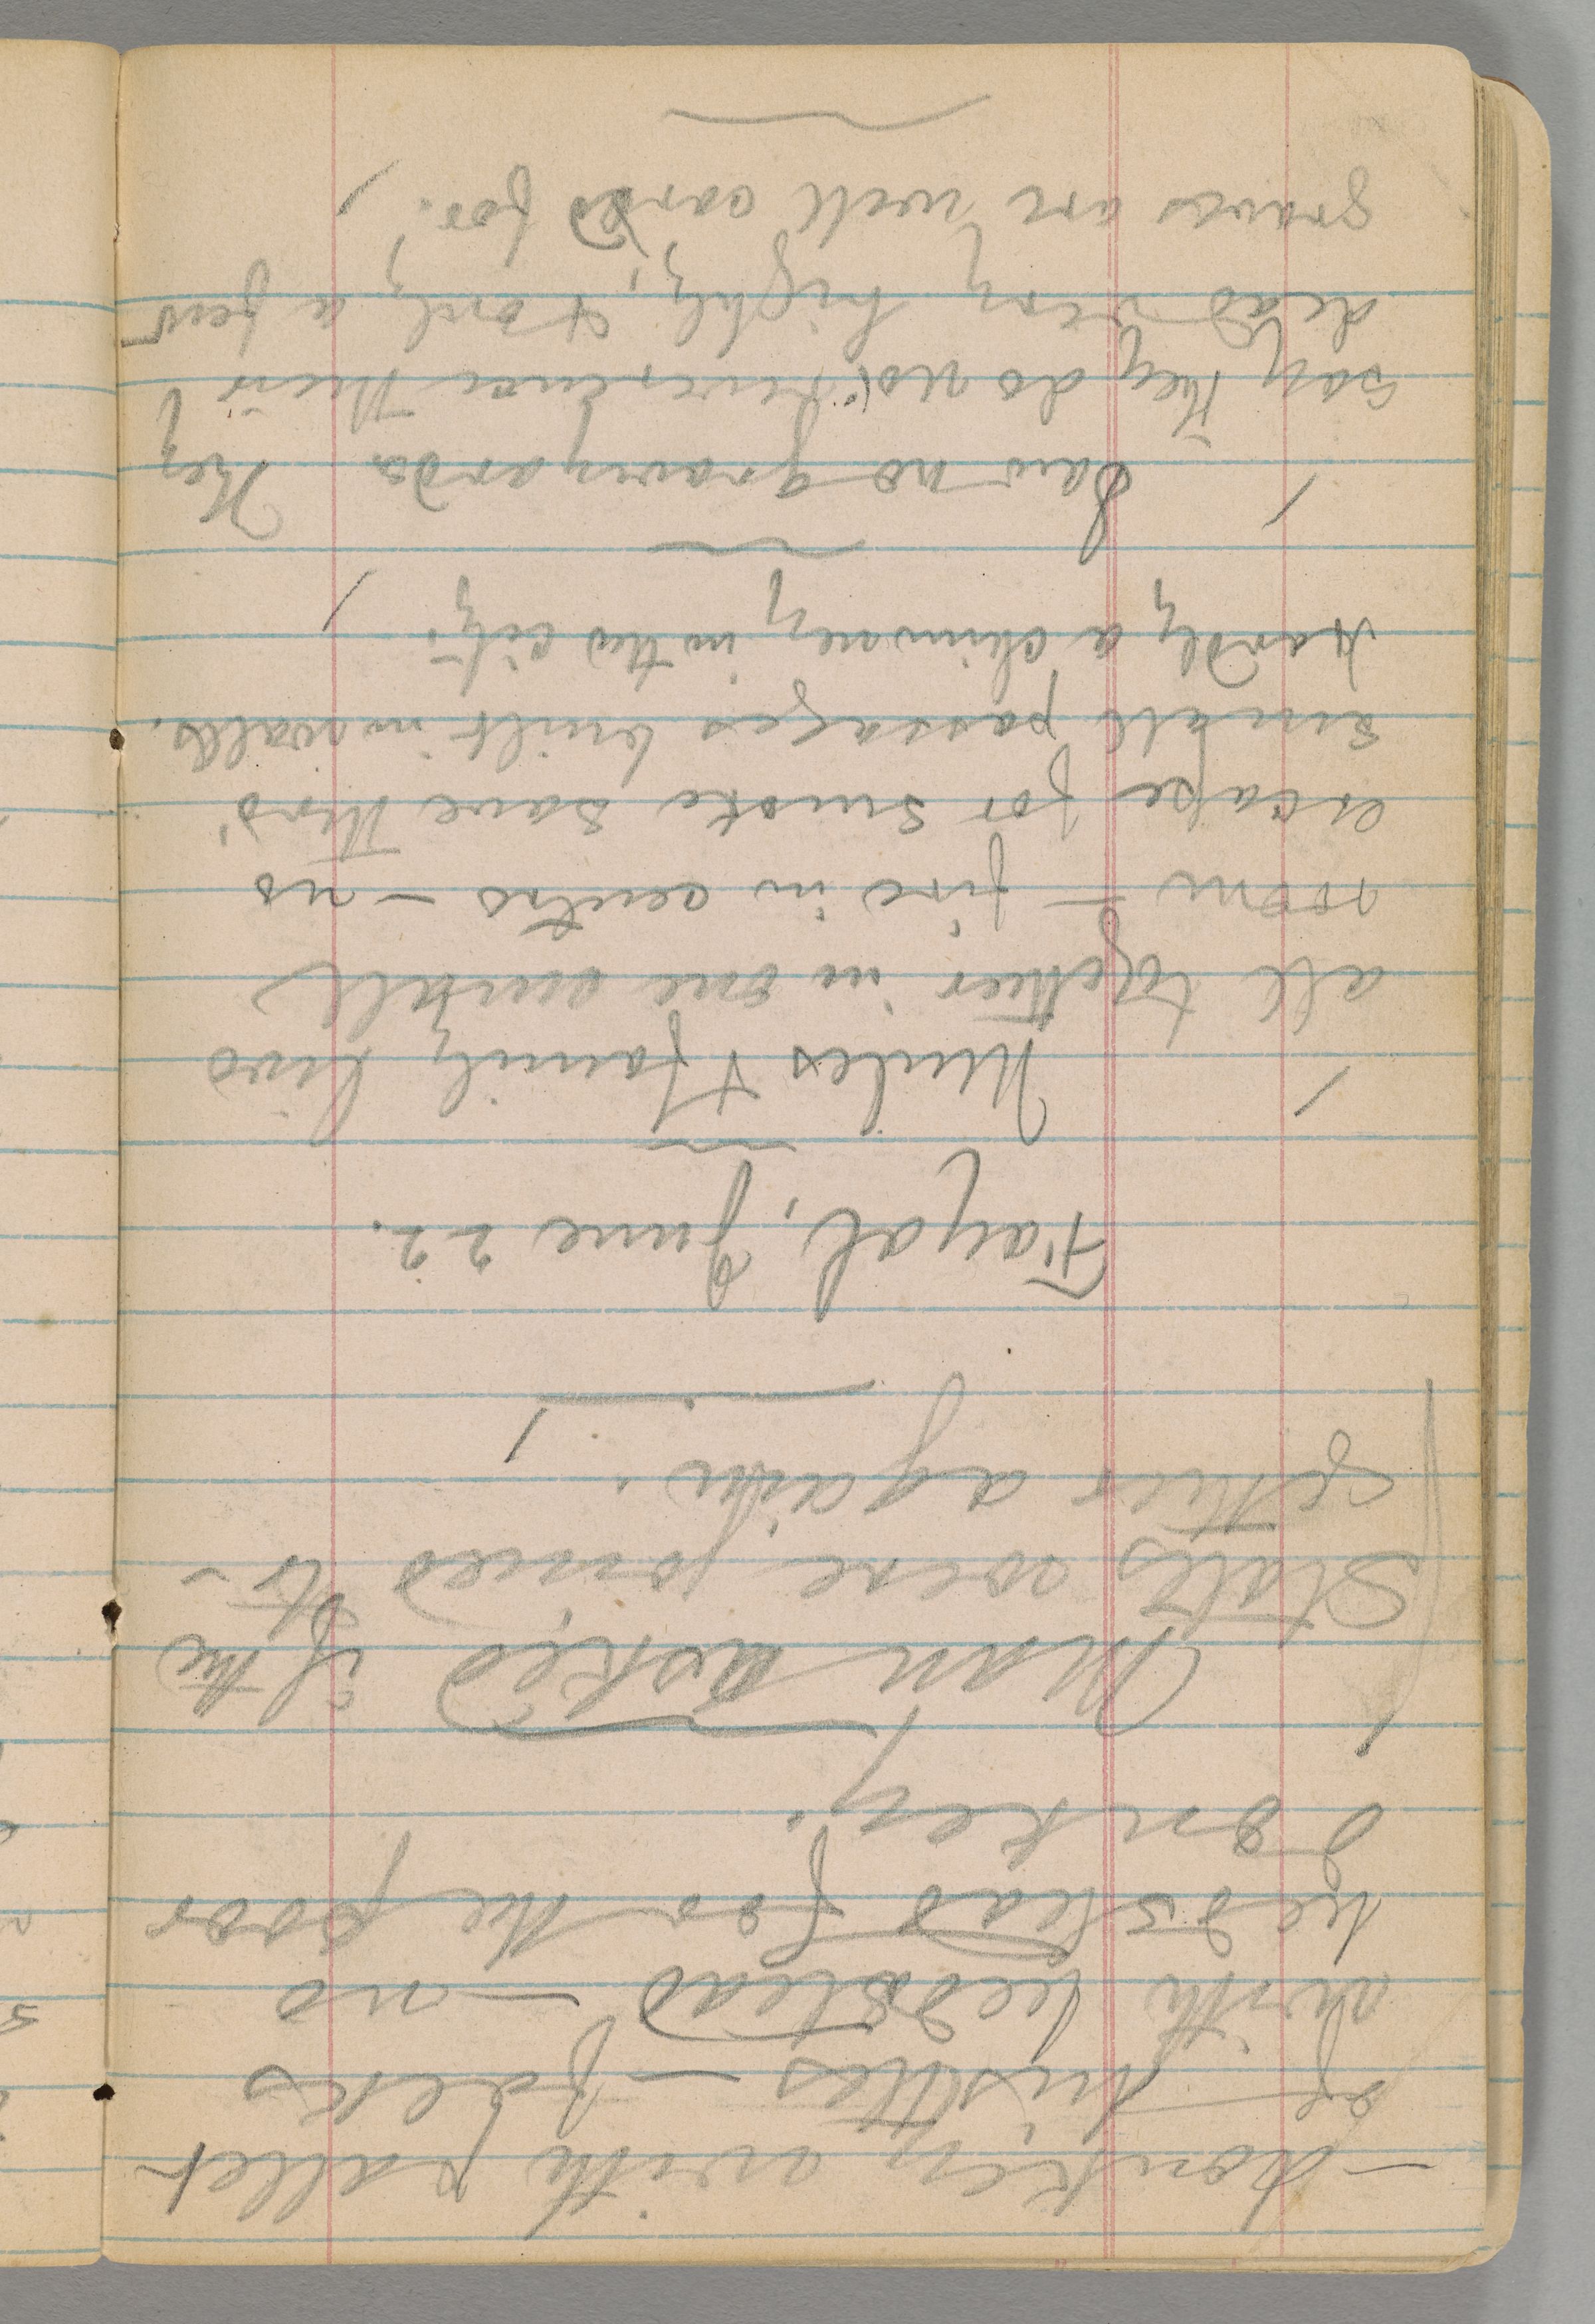 — donkey with pallet
of thistles — folks
with bedstead — no
bedstead for the poor
donkey.
Man asked if the
States were joined to-
gether again.
Fayal, June 22.
Mules & family live
all together in one small
room — fire in centre — no
escape for smoke save thro'
small passages built in walls.
Hardly a chimney in the city.
Saw no graveyards. They
say they do not reverence their
dead very highly, & only a few
graves are well cared for.